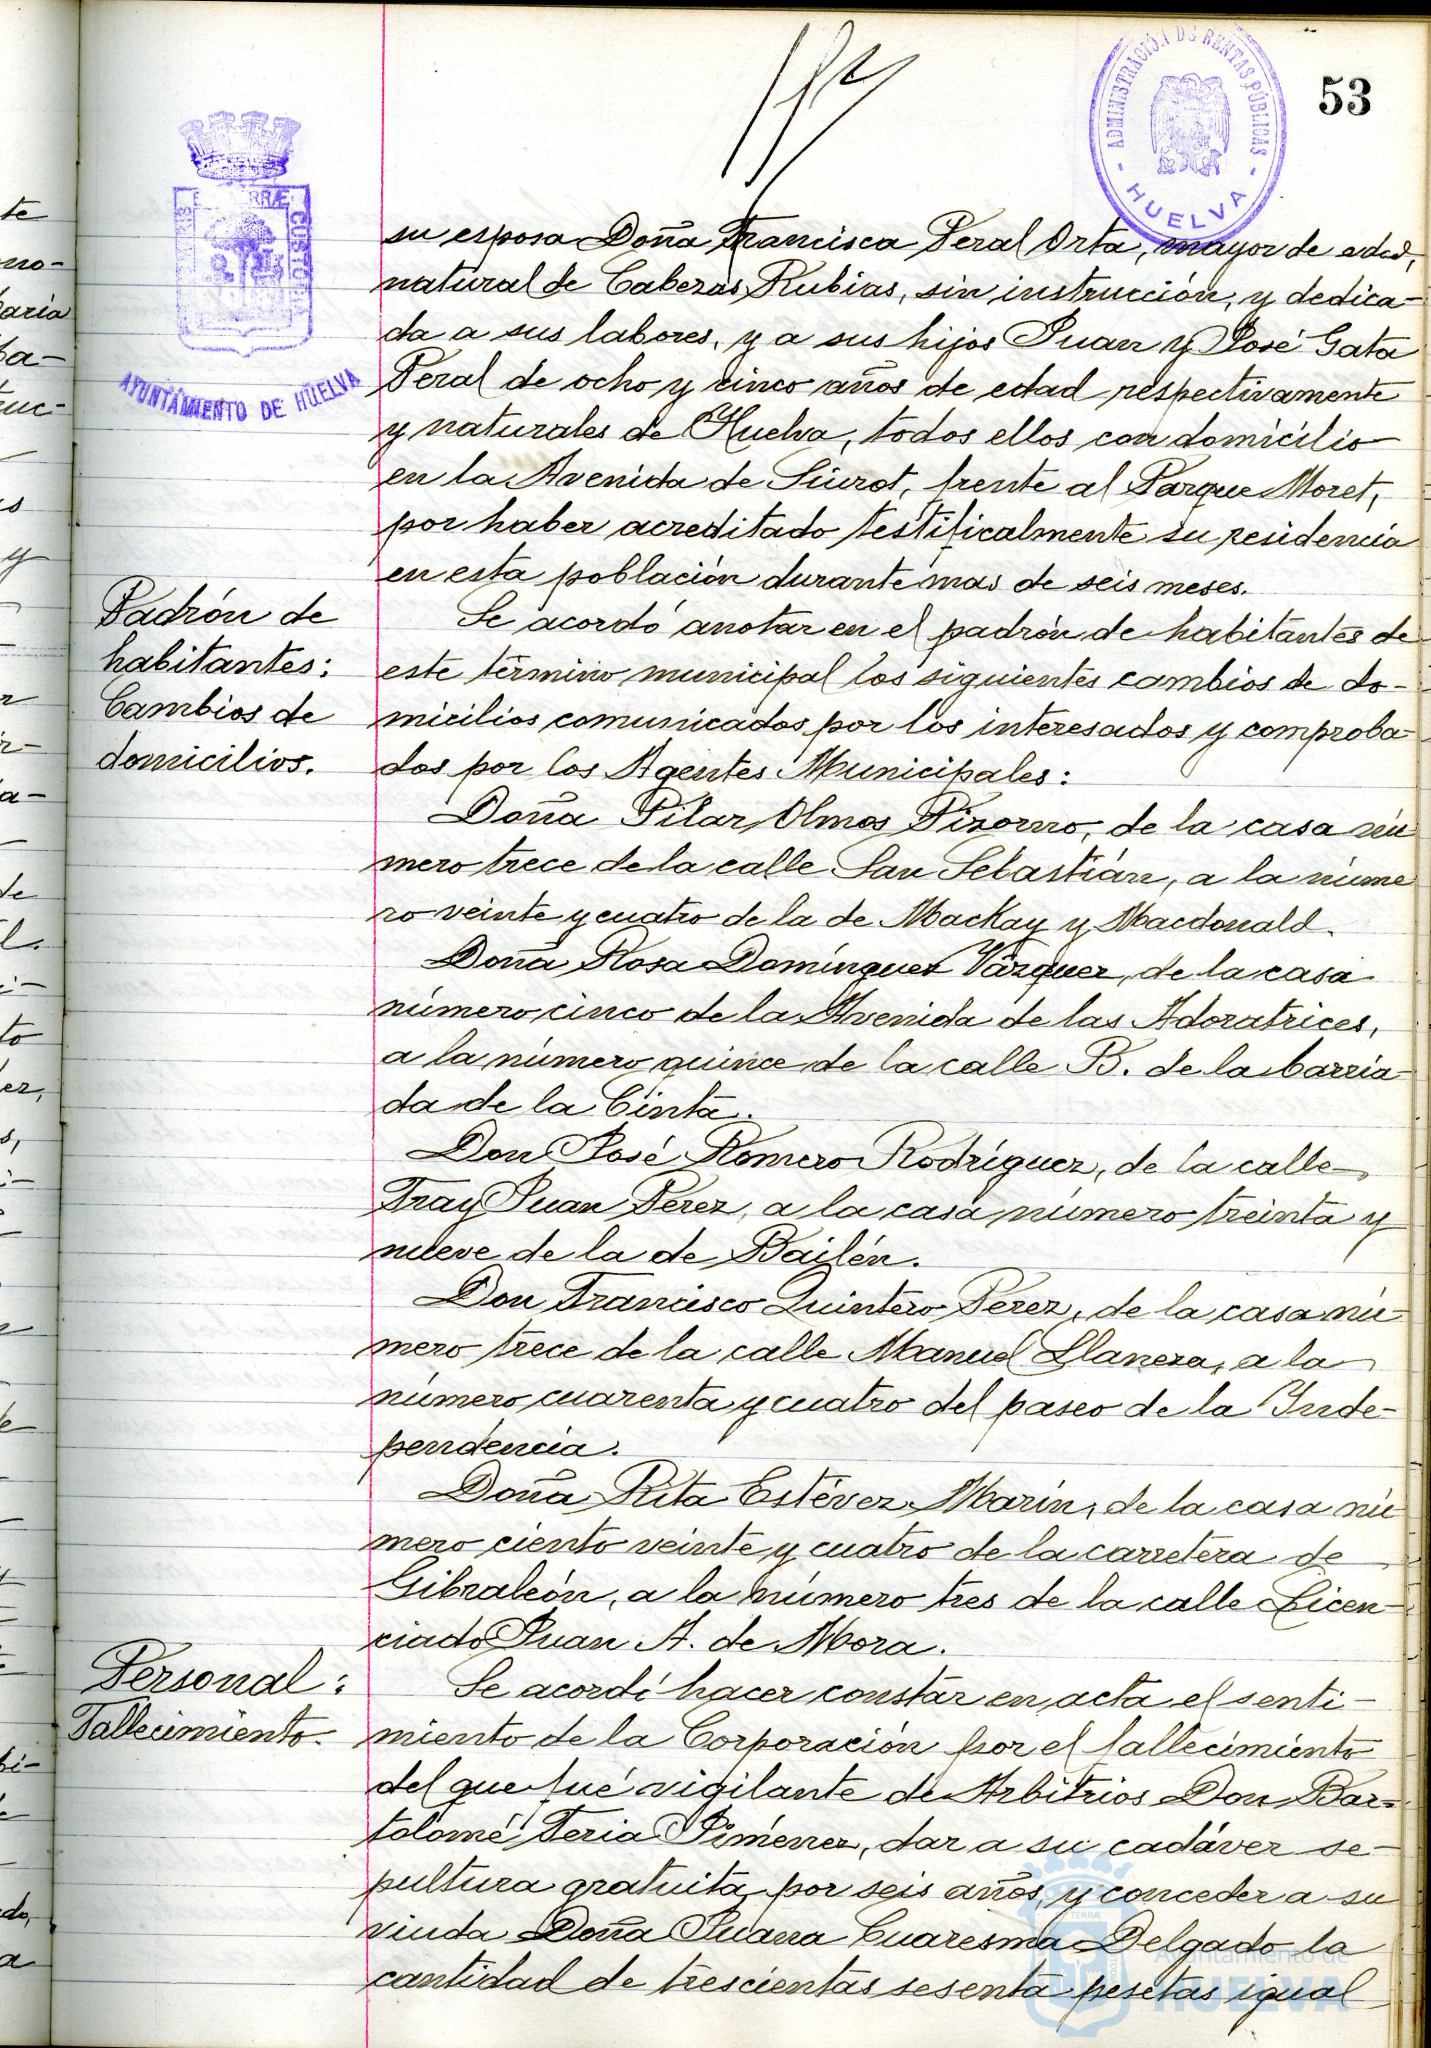 53
ADMINISTRACIÓN DE RENTAS PÚBLICAS
- HUELVA -
TERRÆ CUSTO
AYUNTAMIENTO DE HUELVA
su esposa Doña Francisca Peral Orta, mayor de edad,
natural de Cabezas Rubias, sin instrucción, y dedica-
da a sus labores, y a sus hijos Juan y José Gata
Peral de ocho y cinco años de edad respectivamente
y naturales de Huelva, todos ellos con domicilio
en la Avenida de Siurot, frente al Parque Moret,
por haber acreditado testificalmente su residencia
en esta población durante mas de seis meses.
Padrón de
habitantes:
Cambios de
domicilios.
Se acordó anotar en el padrón de habitantes de
este término municipal los siguientes cambios de do-
micilios comunicados por los interesados y comproba-
dos por los Agentes Municipales:
Doña Pilar Olmos Pizorno, de la casa nú
mero trece de la calle San Sebastián, a la núme
ro veinte y cuatro de la de Mackay y Macdonald.
Doña Rosa Domínguez Vázquez, de la casa
número cinco de la Avenida de las Adoratrices,
a la número quince de la calle B. de la barria-
da de la Cinta.
Don José Romero Rodríguez, de la calle
Fray Juan Pérez, a la casa número treinta y
nueve de la de Bailén.
Don Francisco Quintero Perez, de la casa nú-
mero trece de la calle Manuel Llaneza, a la
número cuarenta y cuatro del paseo de la Inde-
pendencia.
Doña Rita Estévez Marín, de la casa nú-
mero ciento veinte y cuatro de la carretera de
Gibraleón, a la número tres de la calle Licen-
ciado Juan A. de Mora.
Personal:
Fallecimiento.
Se acordó hacer constar en acta el senti-
miento de la Corporación por el fallecimiento
del que fué vigilante de Arbitrios Don Bar-
tolomé Feria Jiménez, dar a su cadáver se-
pultura gratuita por seis años, y conceder a su
viuda Doña Juana Cuaresma Delgado la
cantidad de trescientas sesenta pesetas igual
Ayuntamiento de
HUELVA